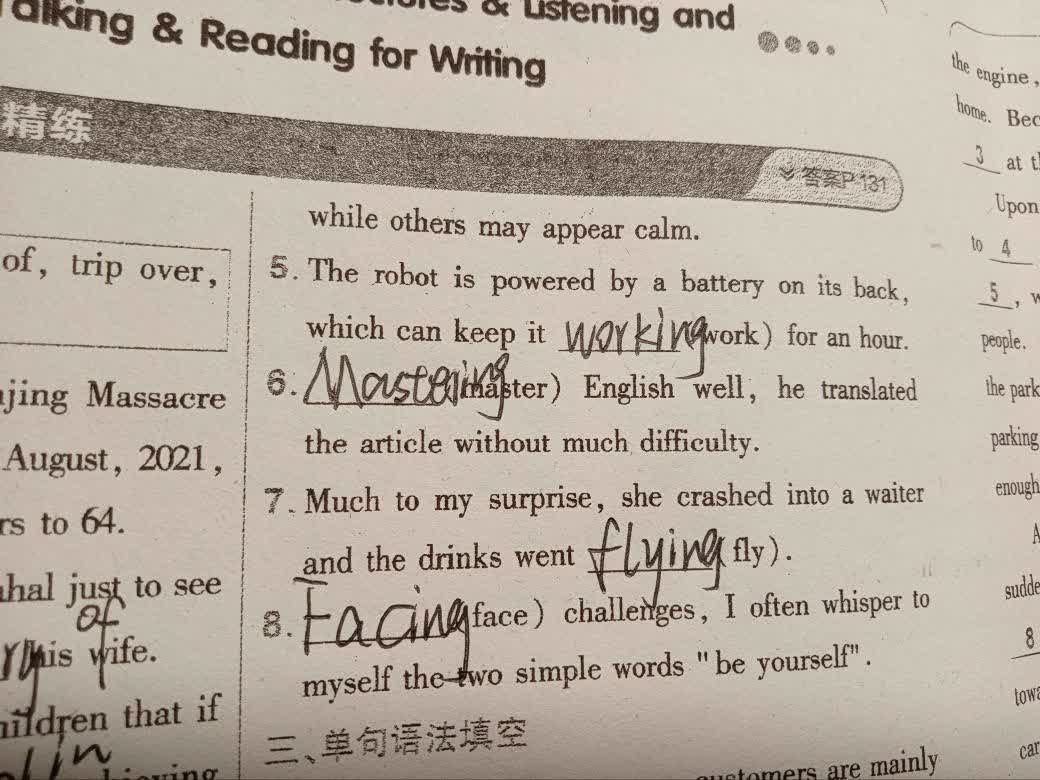 alking & Reading for Writing
& Listening and
精练
答案P 131
of, trip over,
jing Massacre
August, 2021,
rs to 64.
hal just to see
of
his wife.
hildren that if
in
while others may appear calm.
5. The robot is powered by a battery on its back,
which can keep it working work) for an hour.
6. Mastering master) English well, he translated
the article without much difficulty.
7. Much to my surprise, she crashed into a waiter
and the drinks went flying fly).
8. Facing face) challenges, I often whisper to
myself the two simple words "be yourself".
三、单句语法填空
customers are mainly
the engine,
home. Bec
3 at t
Upon
to 4
5, w
people.
the park
parking
enough
A
sudde
8
towa
car